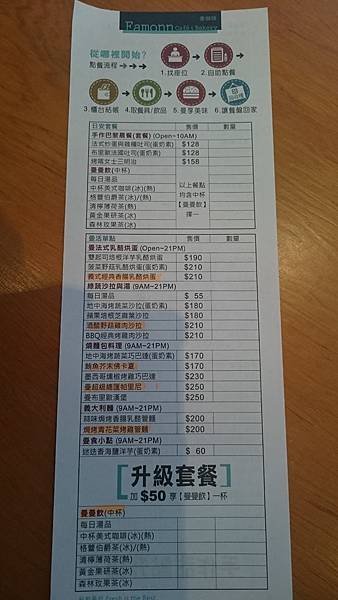 曼咖啡
Eamonn
Café & Bakery
從哪裡開始?
點餐流程
1.找座位 2.自助點餐
3.櫃台結帳 4.取餐具/飲品 5.曼享美味 6.讓餐盤回家
日安套餐 售價 數量
手作巴黎晨餐(套餐) (Open~10AM)
法式炒蛋與雜糧吐司(蛋奶素) $128
布里歐法國吐司(蛋奶素) $128
烤雞女士三明治 $158
曼曼飲(中杯)
每日湯品
中杯美式咖啡(冰)(熱)
格蕾伯爵茶(冰)/(熱)
清檸薄荷茶(熱)
黃金果研茶(冰)
森林玫果茶(冰)
以上餐點
均含中杯
【曼曼飲】
擇一
曼活單點 售價 數量
曼法式乳酪烘蛋 (Open~21PM)
雙起司培根洋芋乳酪烘蛋 $190
菠菜野菇乳酪烘蛋(蛋奶素) $210
義式經典香腸乳酪烘蛋 $210
綠蔬沙拉與湯 (9AM~21PM)
每日湯品 $ 55
地中海烤蔬菜沙拉(蛋奶素) $180
蘋果培根芝麻葉沙拉 $180
酒醋野菇雞肉沙拉 $210
BBQ經典烤雞肉沙拉 $210
燒麵包料理 (9AM~21PM)
地中海烤蔬菜巧巴達(蛋奶素) $170
鮪魚芥末佛卡夏 $170
墨西哥燻椒烤雞巧巴達 $230
曼超級總匯帕里尼 $250
曼布里歐漢堡 $250
義大利麵 (9AM~21PM)
蒜味焗烤香腸乳酪管麵 $200
焗烤青花菜烤雞管麵 $200
曼食小點 (9AM~21PM)
迷迭香海鹽洋芋(蛋奶素) $ 60
升級套餐
加 $50 享【曼曼飲】一杯
曼曼飲(中杯)
每日湯品
中杯美式咖啡(冰)(熱)
格蕾伯爵茶(冰)/(熱)
清檸薄荷茶(熱)
黃金果研茶(冰)
森林玫果茶(冰)
Fresh is the Best